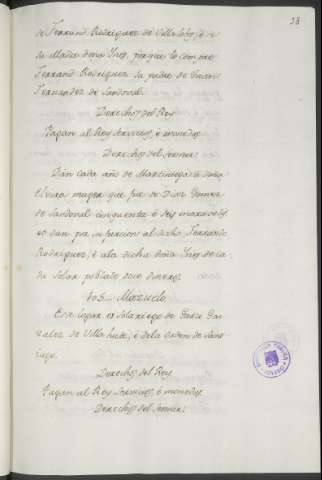 38
de Ferrand Rodriguez de Villalobos, é de
su Madre doña Ynes, porque lo compro
Ferrand Rodriguez su padre de Gutier
Fernandez de Sandoval.
Derechos del Rey
Pagan al Rey servicios, é monedas
Derechos del Sennor:
Dan cada año de Marzadega á doña
Elvira muger que fue de Diaz Gomez
de Sandoval cinquenta é seis maravedis,
et dan por infurcion al dicho Ferrand
Rodriguez, é a la dicha doña Ynes de ca
da Solar poblado doce dineros.
105.. Mazuelo.
Este logar es Solariego de Garci Gon
zalez de Villa, é dela orden de Sant
iago.
Derechos del Rey
Pagan al Rey servicios, é monedas
Derechos del Sennor: